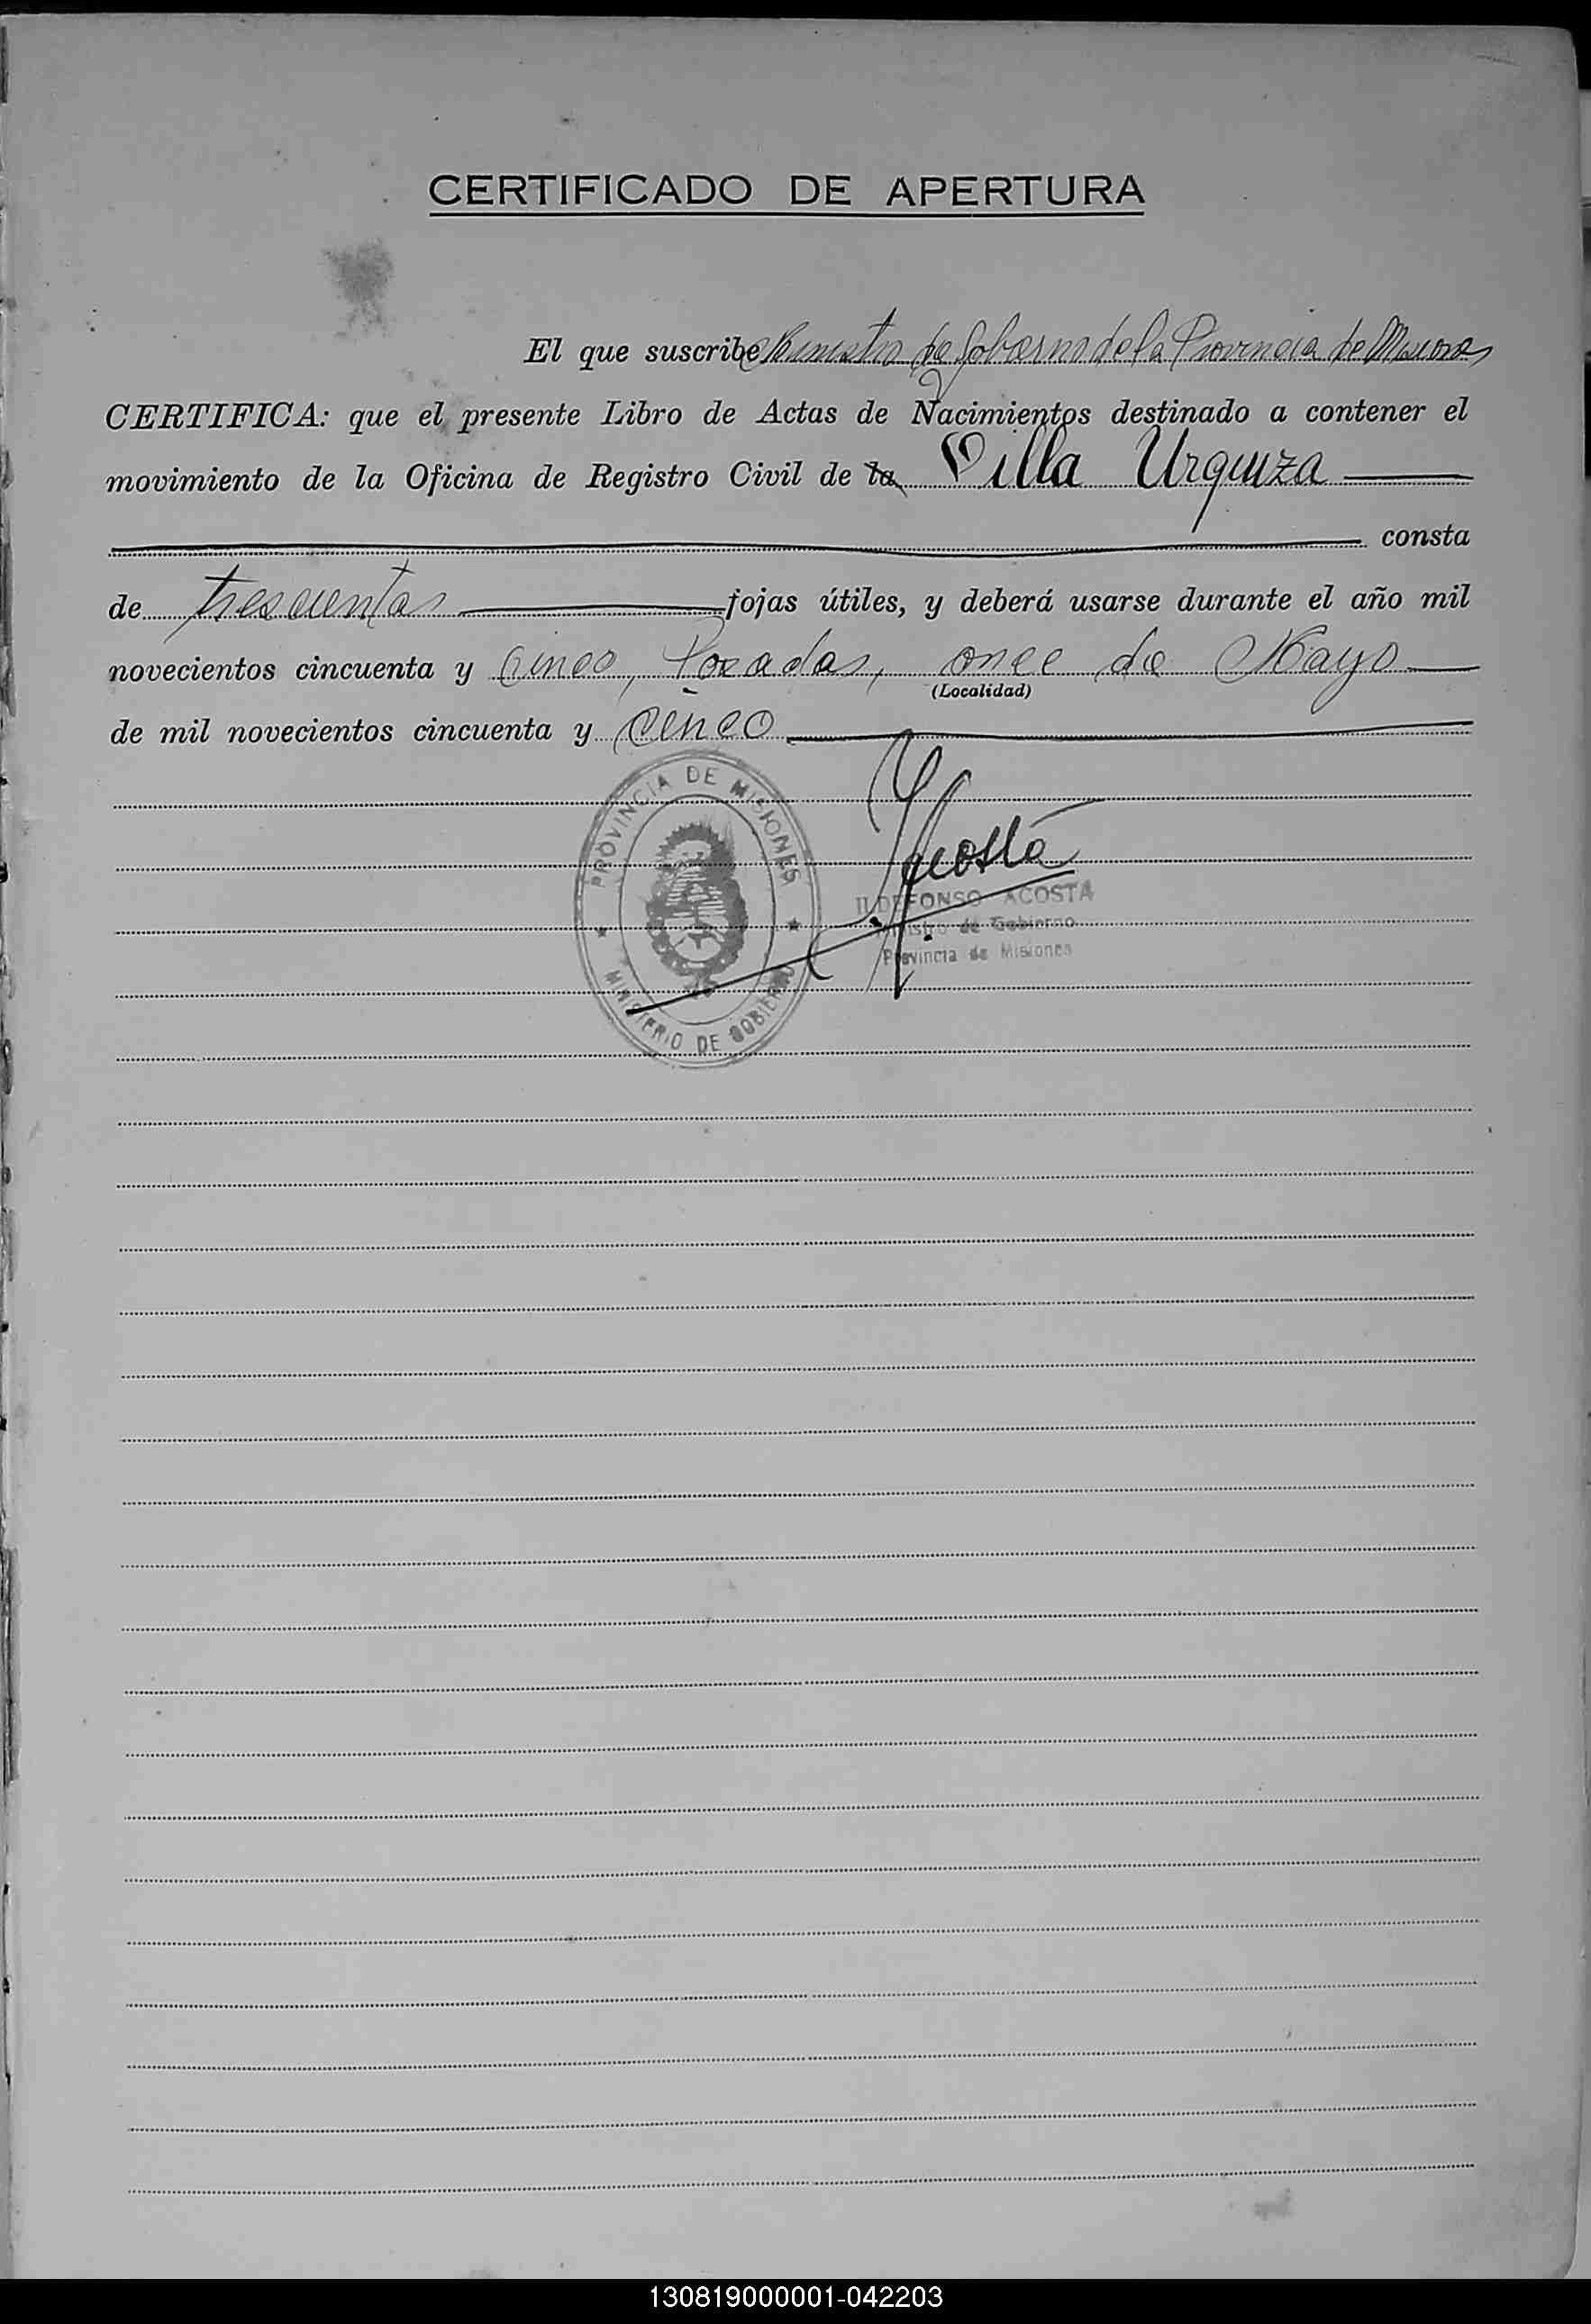 CERTIFICADO DE APERTURA
El que suscribe Ministro de Gobierno de la Provincia de Misiones
CERTIFICA: que el presente Libro de Actas de Nacimientos destinado a contener el
movimiento de la Oficina de Registro Civil de la Villa Urquiza
consta
de trescientas fojas útiles, y deberá usarse durante el año mil
novecientos cincuenta y Cinco, Posadas, once de Mayo
(Localidad)
de mil novecientos cincuenta y Cinco
PROVINCIA DE MISIONES
MINISTERIO DE GOBIERNO
Acosta
ILDEFONSO ACOSTA
Ministro de Gobierno
Provincia de Misiones
130819000001-042203